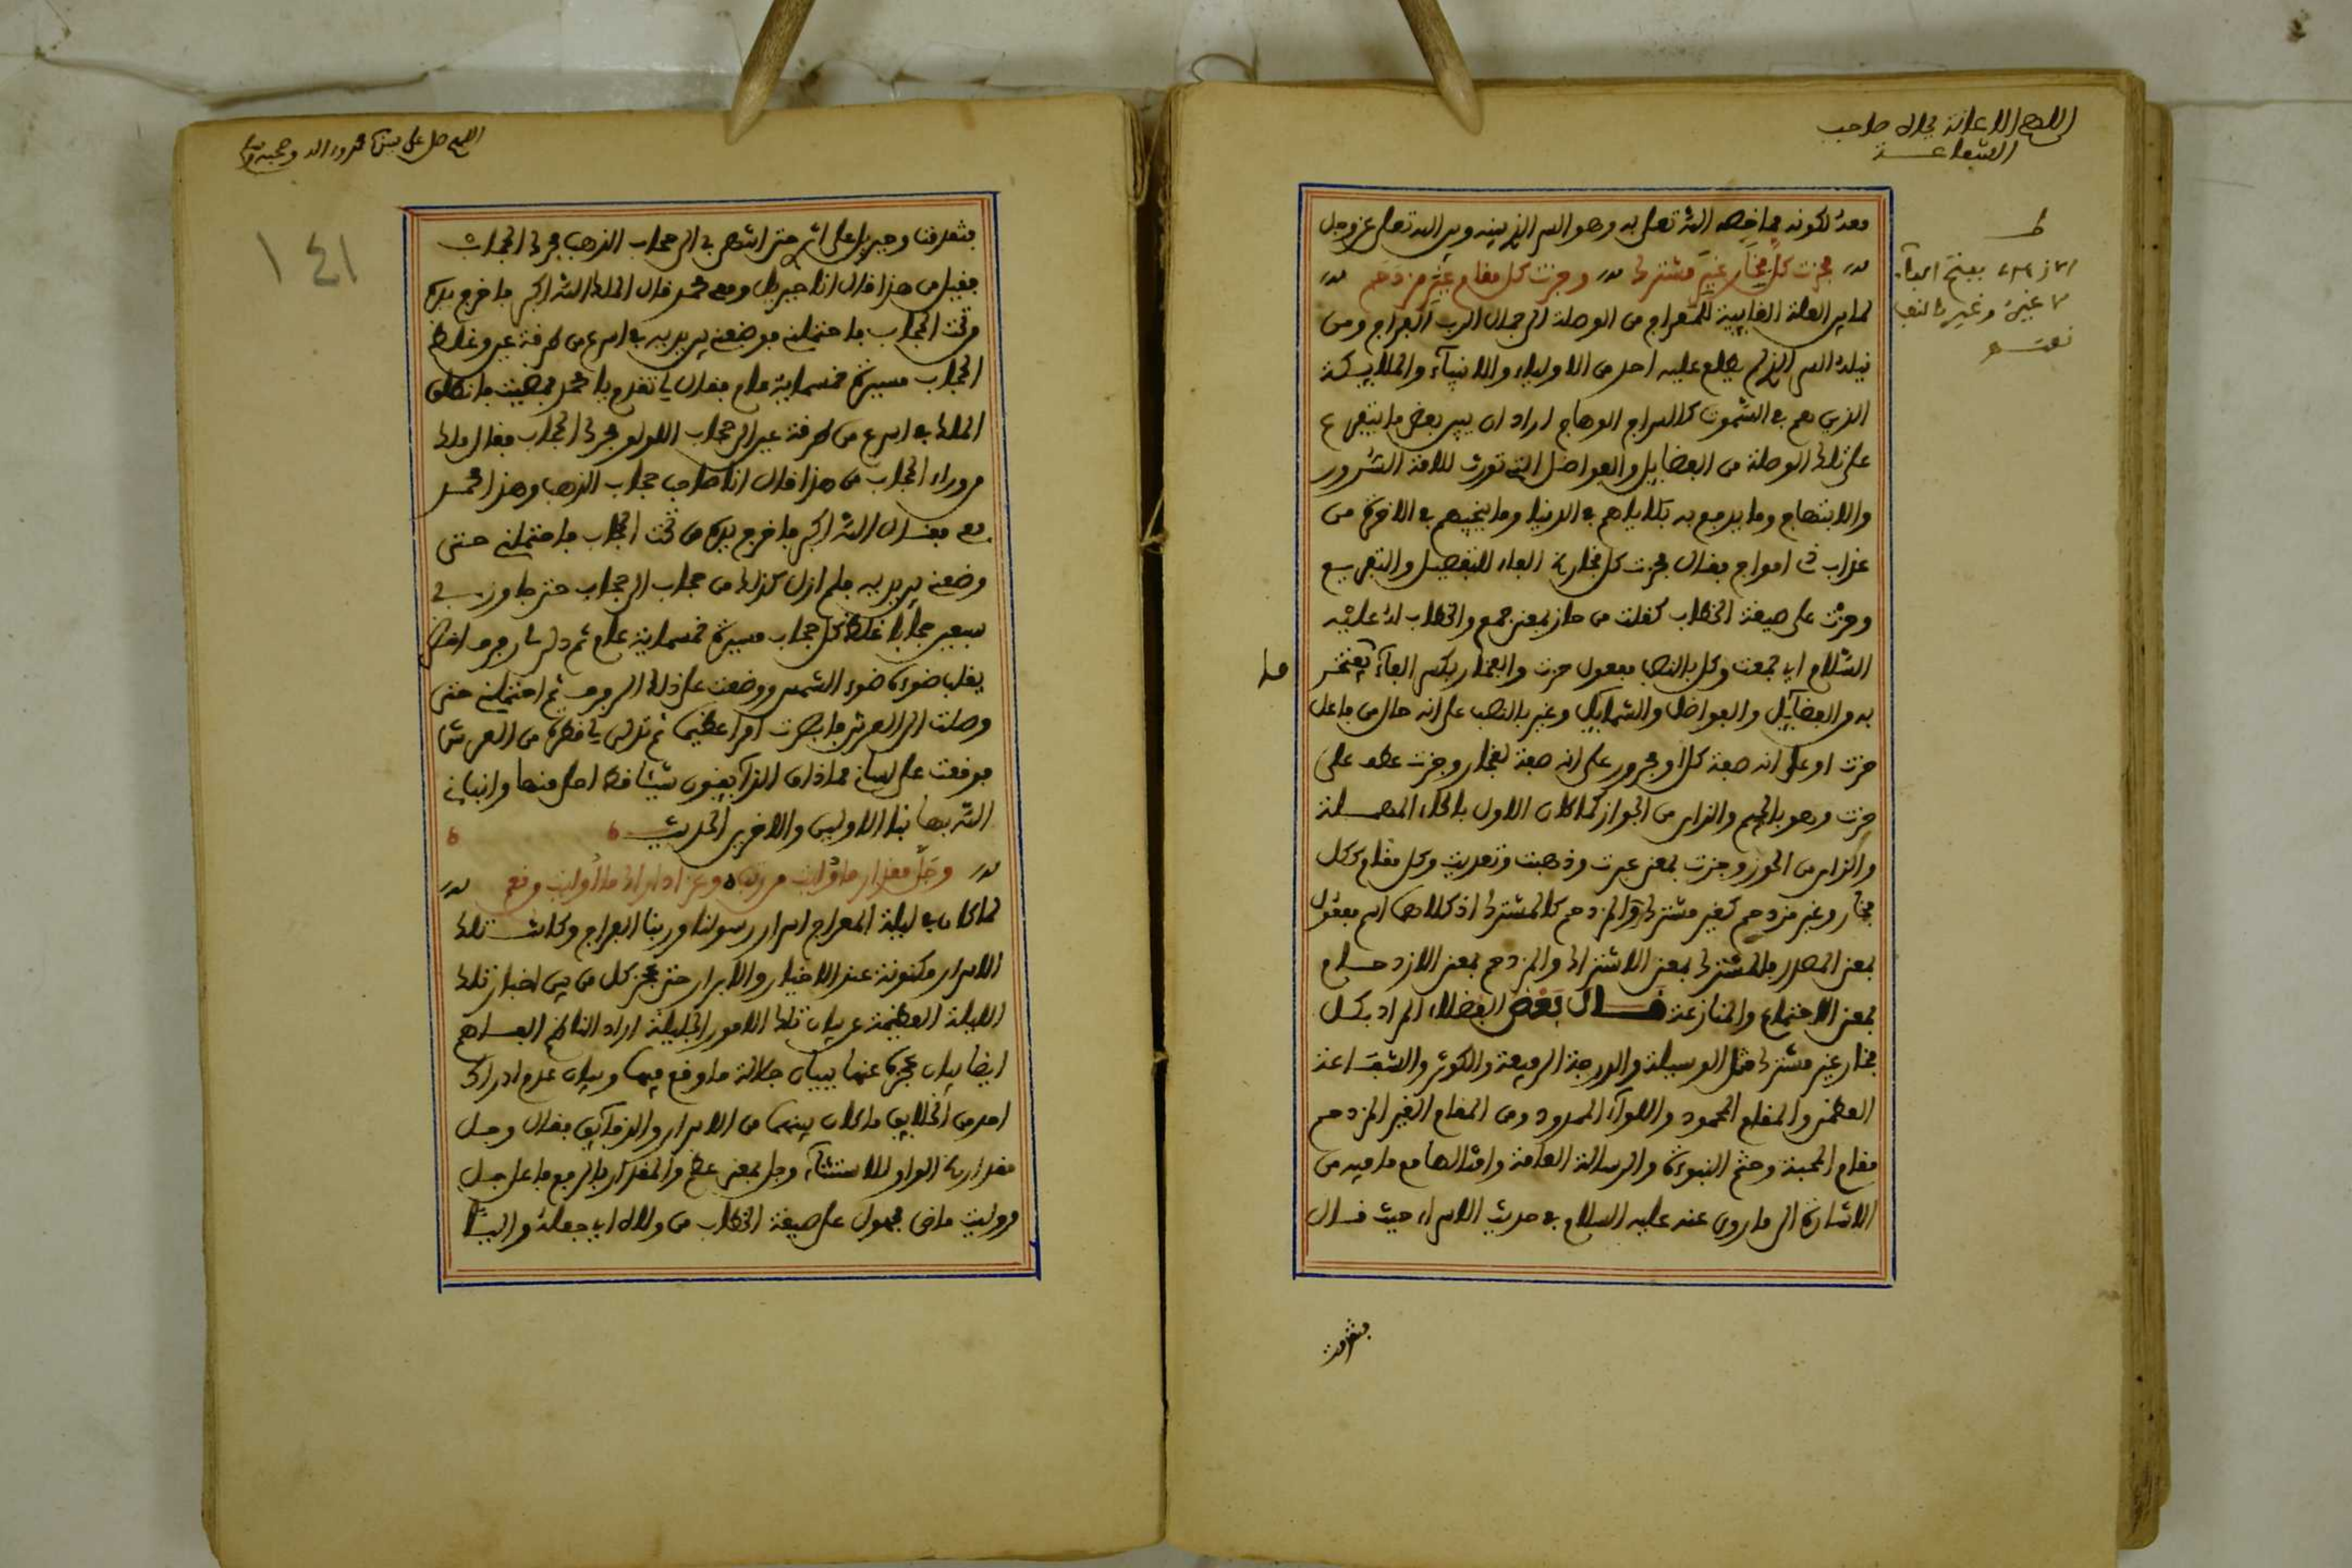 اللهم الاعانة بجاه صاحب
الشفاعة
معه لكونه مما خصه الله تعلى به وهو السر الذي بينه وبين الله تعلى عز وجل
فحزت كل فخار غير مشترك وجزت كل مقام غير مزدحم
لما بين العلة الغايية للمعراج من الوصلة الى جمال الرب الفراج ومن
نيله السر الذي لم يطلع عليه احد من الاولياء والانبياء والملايكة
الذين هم في السموت كالسراج الوهاج اراد ان يبين بعض ما يتفرع
على تلك الوصلة من الفضايل والفواضل التي تورث للامة السرور
والابتهاج وما يدفع به بلاياهم في الدنيا وما ينجيهم في الاخرة من
عذاب امواج فقال فحزت كل فخار الفاء للتفصيل والتفريع
وحزت على صيغة الخطاب كقلت من حاز بمعنى جمع والخطاب له عليه
السلام اي جمعت وكل بالنصب مفعول حزت والفخار بكسر الفاء يفتخر
به من الفضايل والفواضل والشمايل وغير بالنصب على انه حال من فاعل
حزت او على انه صفة كل او مجرور على انه صفة لفخار وجزت عطف على
حزت وهو بالجيم والزاي من الجواز كما كان الاول بالحاء المهملة
والزاي من الحوز وجزت بمعنى عبرت وذهبت وتعديت وكل مقام ككل
فخار وغير مزدحم كغير مشترك والمزدحم كالمشترك اذ كلاهما اسم مفعول
بمعنى المصدر فالمشترك بمعنى الاشتراك والمزدحم بمعنى الازدحام
بمعنى الاجتماع والمنازعة قال بعض الفضلاء المراد بكل
فخار غير مشترك مثل الوسيلة والدرجة الرفيعة والكوثر والشفاعة
العظمى والمقام المحمود واللواء الممدود ومن المقام الغير المزدحم
مقام المحبة وختم النبوة والرسالة العامة وامثالها مع ما فيه من
الاشارة الى ما روى عنه عليه السلام في حديث الاسراء حيث قال
فتفرقنا
اللهم صل على سيدنا محمد وءاله وصحبه
١٤١
فتفرقنا وجبريل على اثري حتى انتهى بي الى حجاب الذهب فحرك الحجاب
فقيل من هذا قال انا جبريل ومعي محمد قال الملك الله اكبر فاخرج يده
من تحت الحجاب فاحتملني فوضعني بين يديه في اسرع من طرفة عين وغلظ
الحجاب مسيرة خمسماية عام فقال لي تقدم يا محمد فمضيت فانطلق
الملك في اسرع من طرفة عين الى حجاب اللولو فحرك الحجاب فقال ملك
من وراء الحجاب من هذا قال انا صاحب حجاب الذهب وهذا محمد
معي فقال الله اكبر فاخرج يده من تحت الحجاب فاحتملني حتى
وضعني بين يديه فلم ازل كذلك من حجاب الى حجاب حتى جاوز بي
سبعين حجابا غلظ كل حجاب مسيرة خمسماية عام ثم دلي لي رفرف اخضر
يغلب ضوءه ضوء الشمس ووضعت على ذلك الرفرف ثم احتملني حتى
وصلت الى العرش فابصرت امرا عظيما ثم تدلى لي قطرة من العرش
فوقعت على لساني فما ذاق الذايقون شيئا قط احلى منها وانباني
الله بها نبا الاولين والاخرين الحديث
وجل مقدار ما وليت من رتب وعز ادراك ما اوليت من نعم
لما كان في ليلة المعراج اسرار رسولنا وربنا الفراج وكانت تلك
الاسرار مكنونة عند الاخيار والابرار حتى عجز كل من بين اخبار تلك
الليلة العظيمة عن بيان تلك الامور الجليلة اراد الناظم الفاهم
ايضا بيان عجزه عنها ببيان جلالة ما وقع فيها وبيان عدم ادراك
احد من الخلايق ما كان بينهما من الاسرار والدقايق فقال وجل
مقدار الواو للاستيناف وجل بمعنى عظم والمقدار بالرفع فاعل جل
ووليت ماض مجهول على صيغة الخطاب من ولاه اي جعله واليا